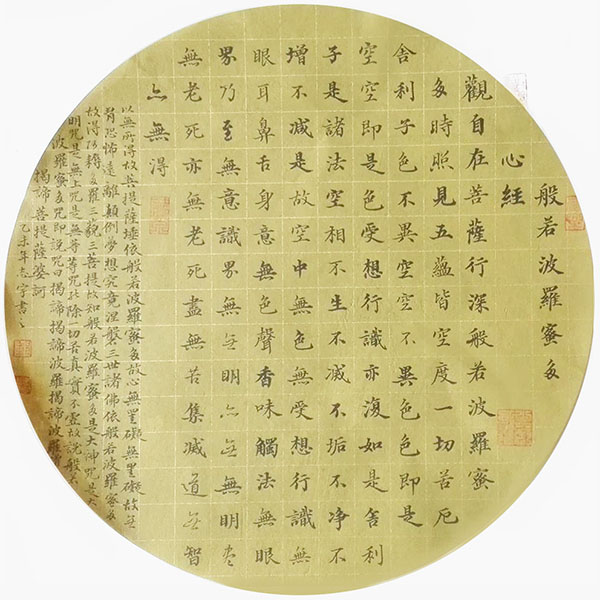 般若波羅蜜多
心經
觀自在菩薩行深般若波羅蜜
多時照見五蘊皆空度一切苦厄
舍利子色不異空空不異色色即是
空空即是色受想行識亦復如是舍利
子是諸法空相不生不滅不垢不净不
增不減是故空中無色無受想行識無
眼耳鼻舌身意無色聲香味觸法無眼
界乃至無意識界無无明亦无無明尽
無老死亦無老死盡無苦集滅道无智
亦無得
以無所得故菩提薩埵依般若波羅蜜多故心無罣礙無罣礙故无
有恐怖遠離顛倒夢想究竟涅槃三世諸佛依般若波羅蜜多
故得阿耨多羅三藐三菩提故知般若波羅蜜多是大神咒是大
明咒是無上咒是無等等咒能除一切苦真實不虛故說般若
波羅蜜多咒即說咒曰揭諦揭諦波羅揭諦波羅
揭諦菩提薩婆訶
乙未年志宇書